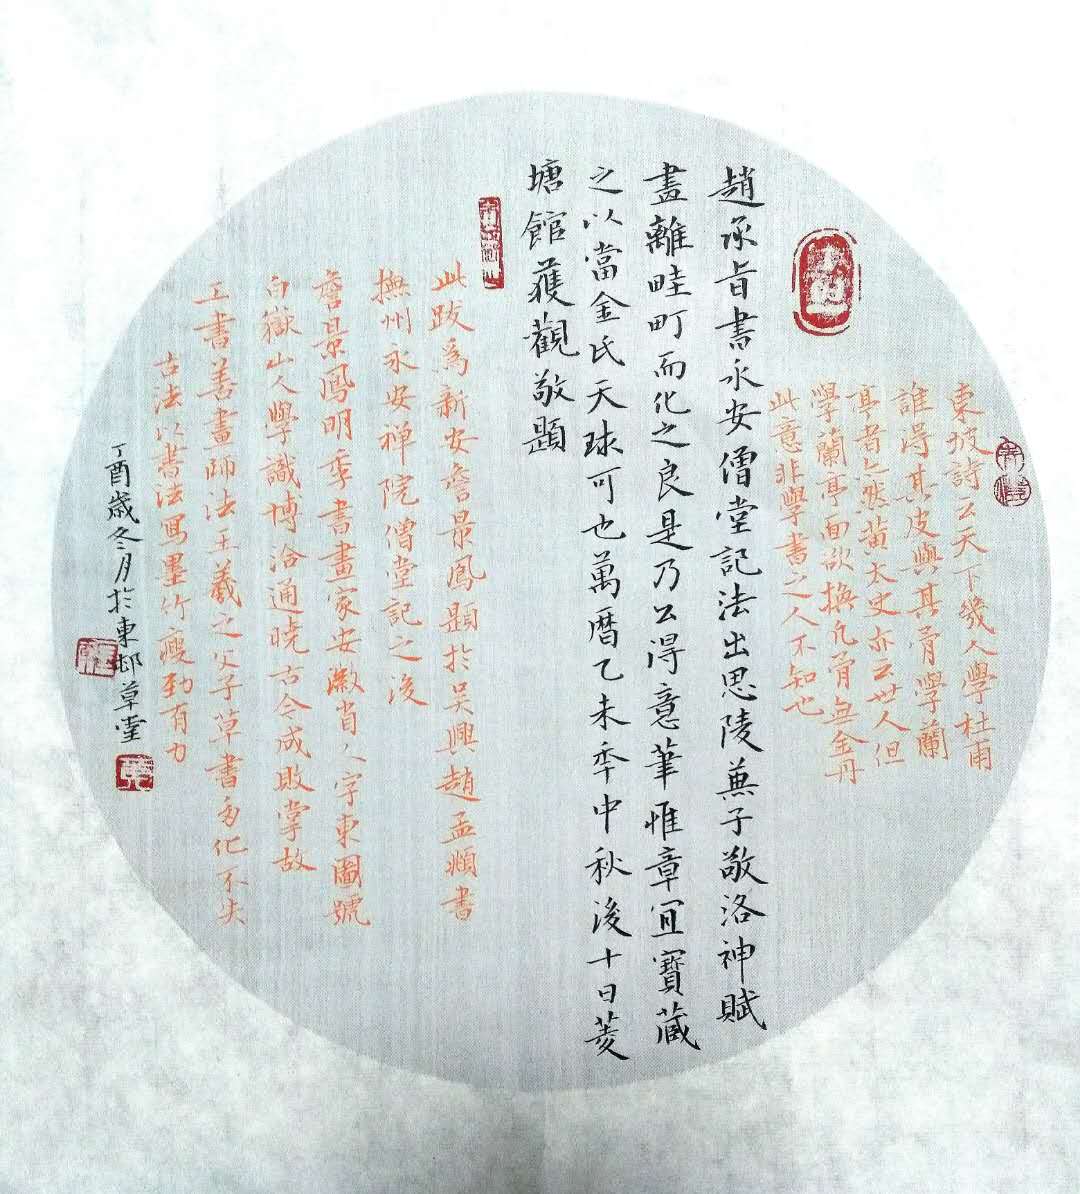 東坡詩云天下幾人學杜甫
誰得其皮與其骨學蘭
亭者亦然黄太史亦云世人但
學蘭亭面欲換凡骨無金丹
此意非學書之人不知也
趙承旨書永安僧堂記法出思陵兼子敬洛神賦
盡離畦町而化之良是乃公得意筆惟章宜寶藏
之以當金氏天球可也萬曆乙未季中秋後十日菱
塘館獲觀敬題
此跋為新安詹景鳳題於吴興趙孟頫書
撫州永安禅院僧堂記之後
詹景鳳明季書畫家安徽省人字東圖號
白嶽山人學識博洽通曉古今成敗掌故
工書善畫師法王羲之父子草書多化不失
古法以書法寫墨竹瘦勁有力
丁酉歲冬月於東邨草堂